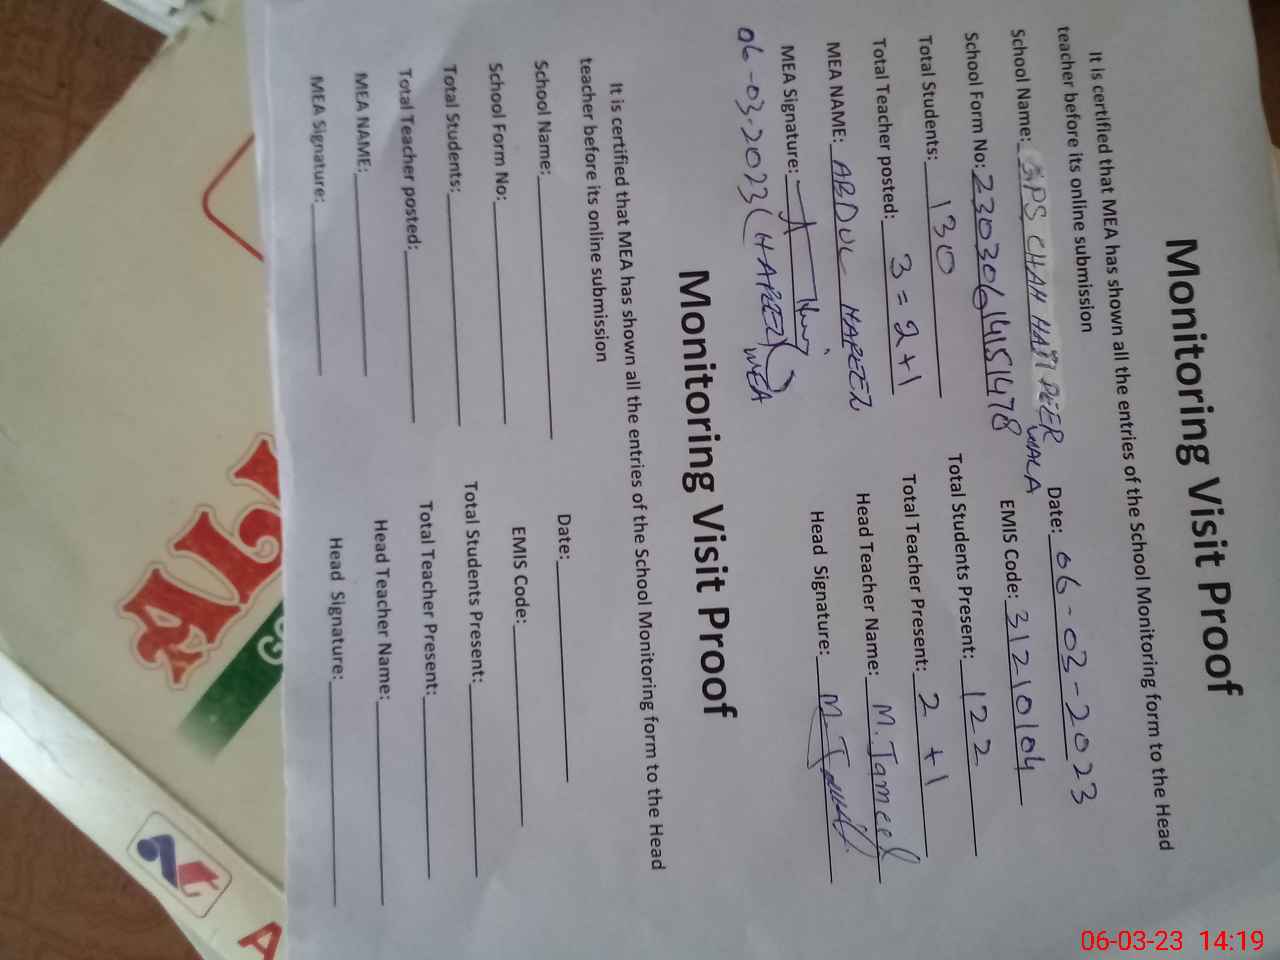 Monitoring Visit Proof
It is certified that MEA has shown all the entries of the School Monitoring form to the Head
teacher before its online submission
School Name: GPS CHAH HAJI PEER WALA Date: 06-03-2023
School Form No: 230306141151478 EMIS Code: 31210104
Total Students: 130 Total Students Present: 122
Total Teacher posted: 3 = 2+1 Total Teacher Present: 2 +1
MEA NAME: ABDUL HAFEEZ Head Teacher Name: M. Jameel
MEA Signature: Head Signature: M. Jameel
06-03-2023 (HAFEEZ) MEA
Monitoring Visit Proof
It is certified that MEA has shown all the entries of the School Monitoring form to the Head
teacher before its online submission
School Name: Date:
School Form No: EMIS Code:
Total Students: Total Students Present:
Total Teacher posted: Total Teacher Present:
MEA NAME: Head Teacher Name:
MEA Signature: Head Signature:
06-03-23 14:19